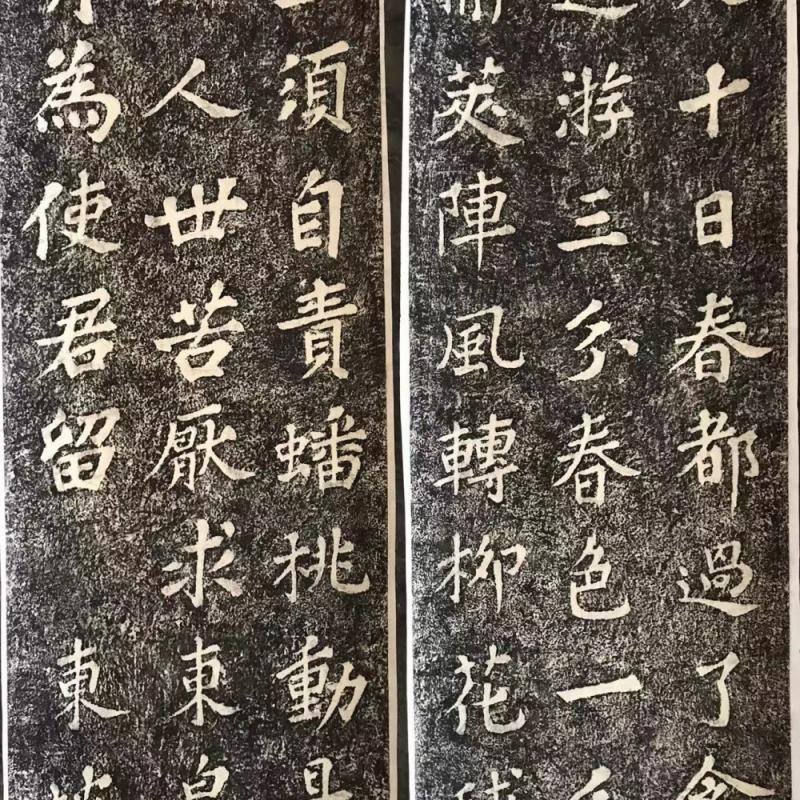 十日春都過了
游三分春色一
莢陣風轉柳花
須自責蟠桃動
人世苦厭求東
為使君留 東